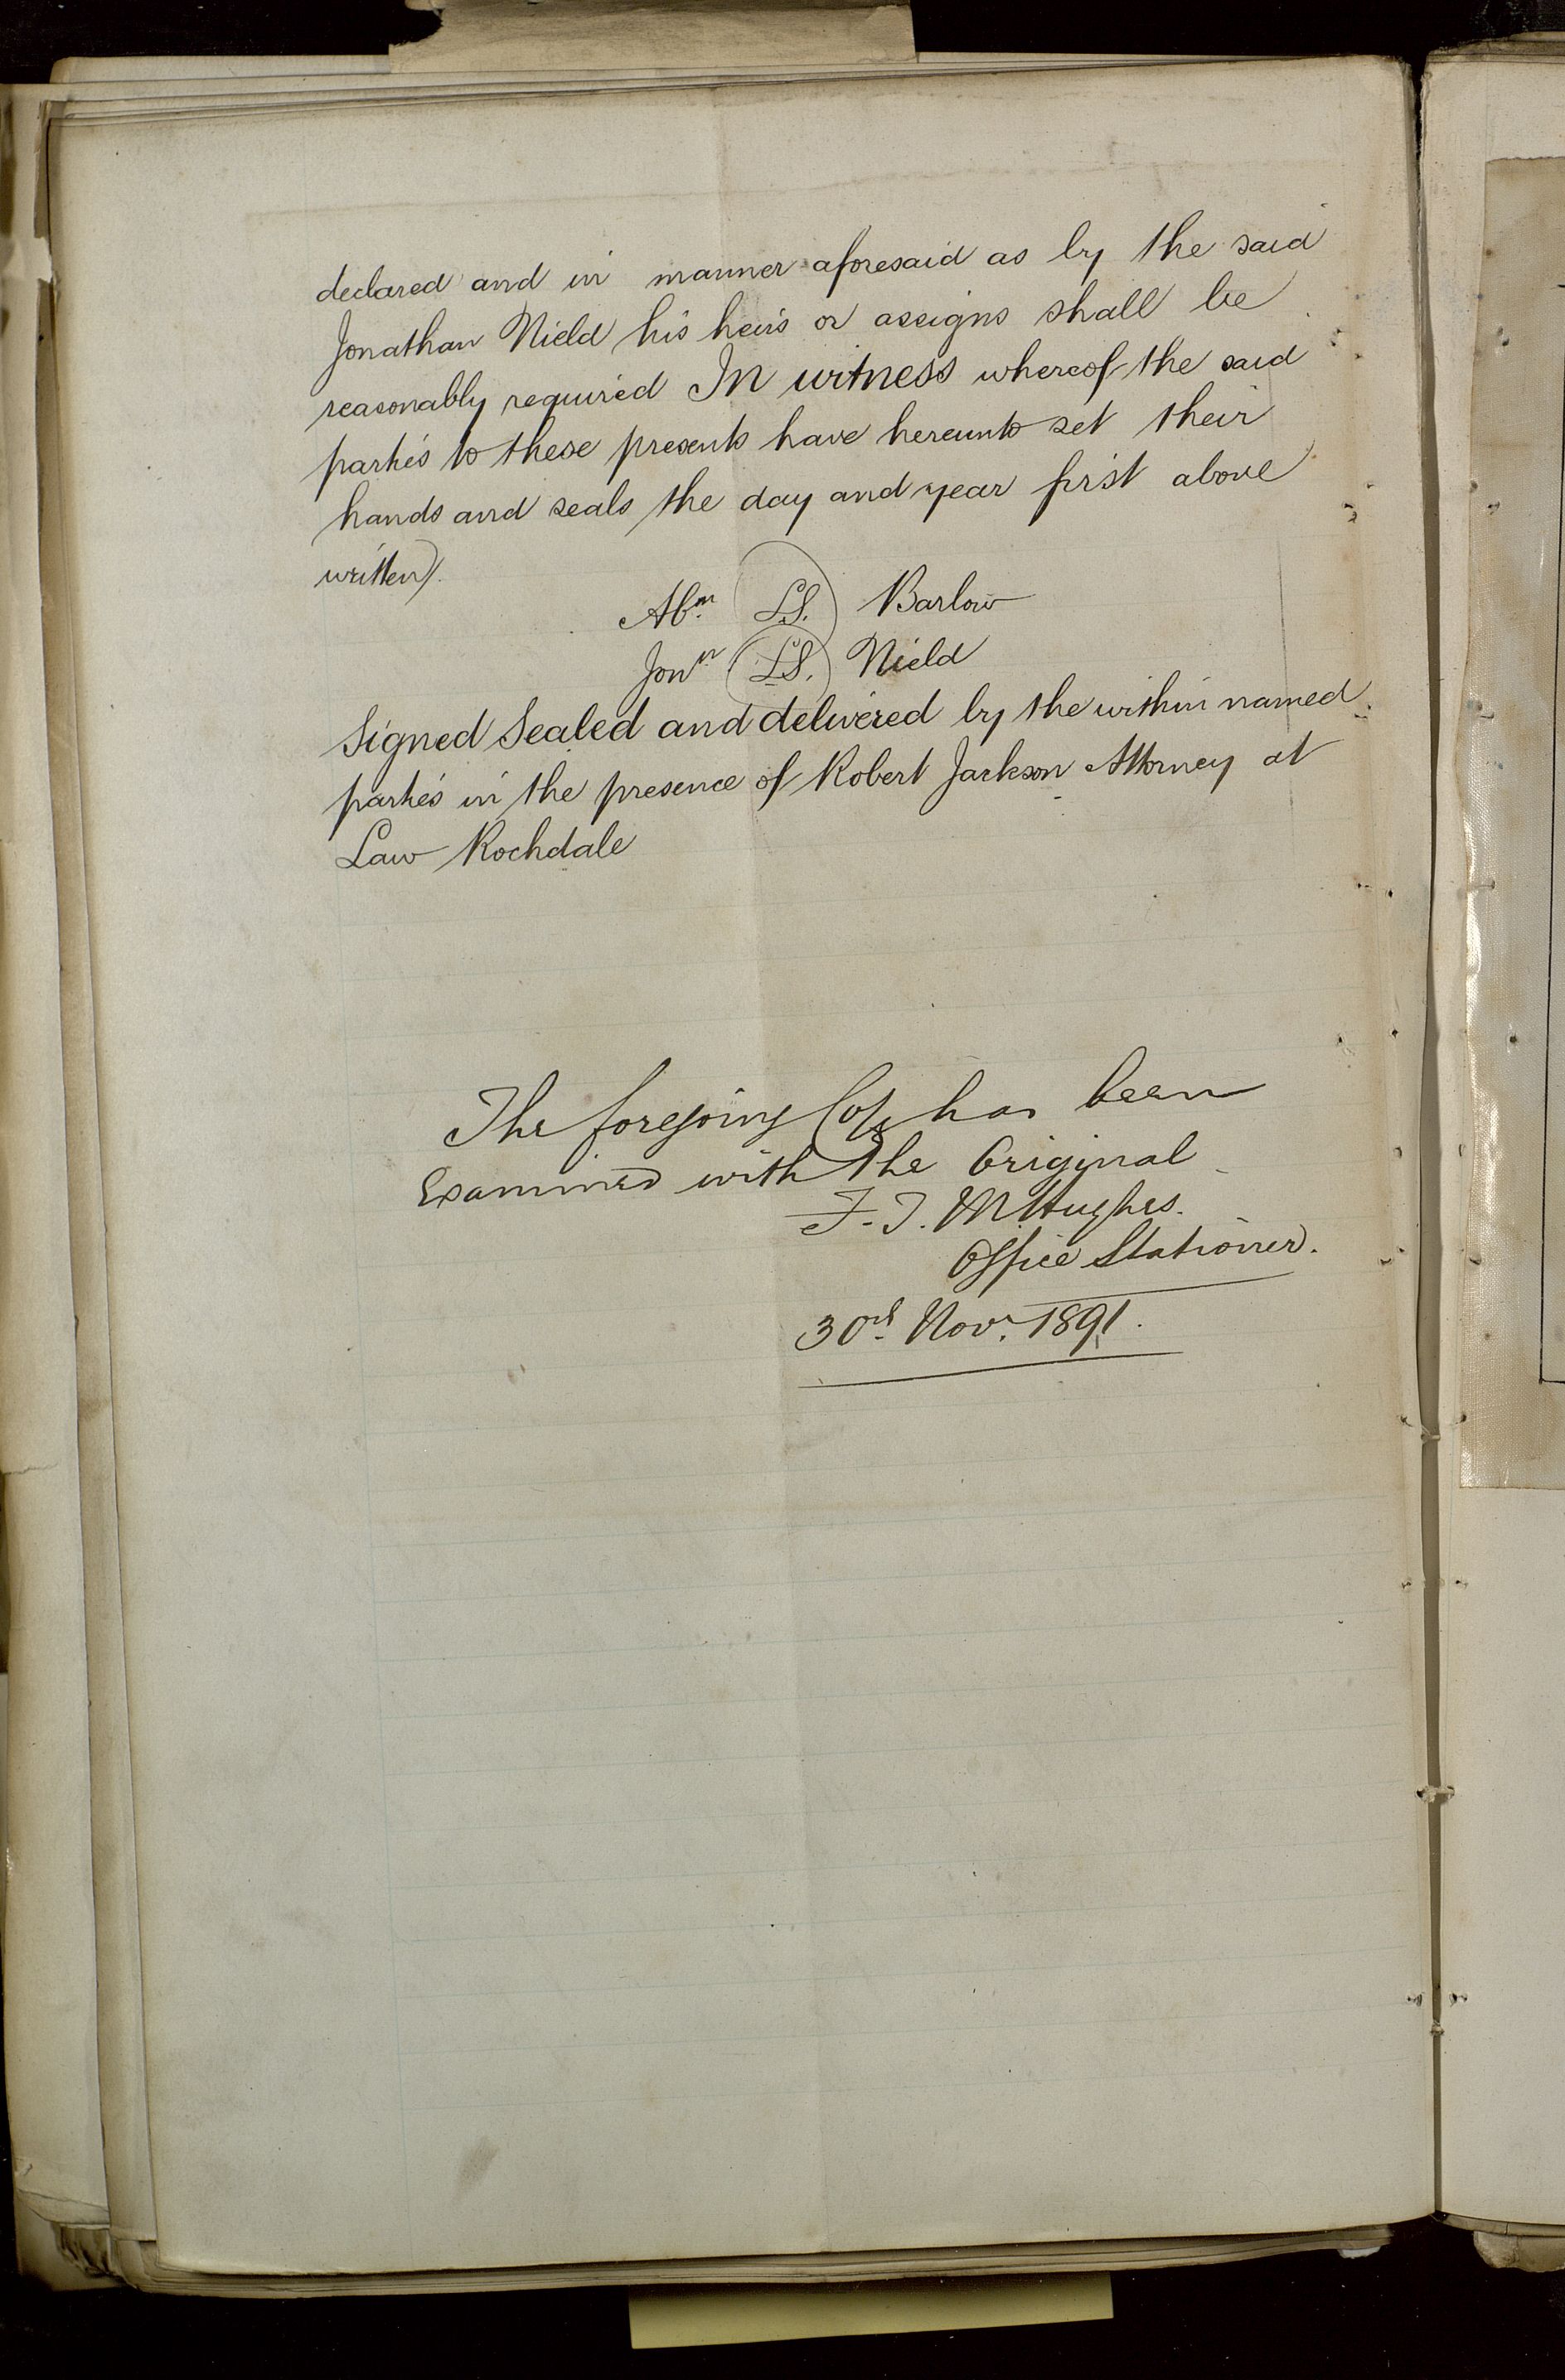 declared and in manner aforesaid as by the said
Jonathan Nield his heirs or assigns shall be
reasonably required In witness whereof the said
parties to these presents have hereunto set their
hands and seals the day and year first above
written/.
Abm. L.S. Barlow
Jonn L.S. Nield
Signed Sealed and delivered by the within named
parties in the presence of Robert Jackson Attorney at
Law Rochdale
The foregoing Copy has been
Examined with the Original
F. J. M Hughes.
Office Stationer.
30th. Novr. 1891.